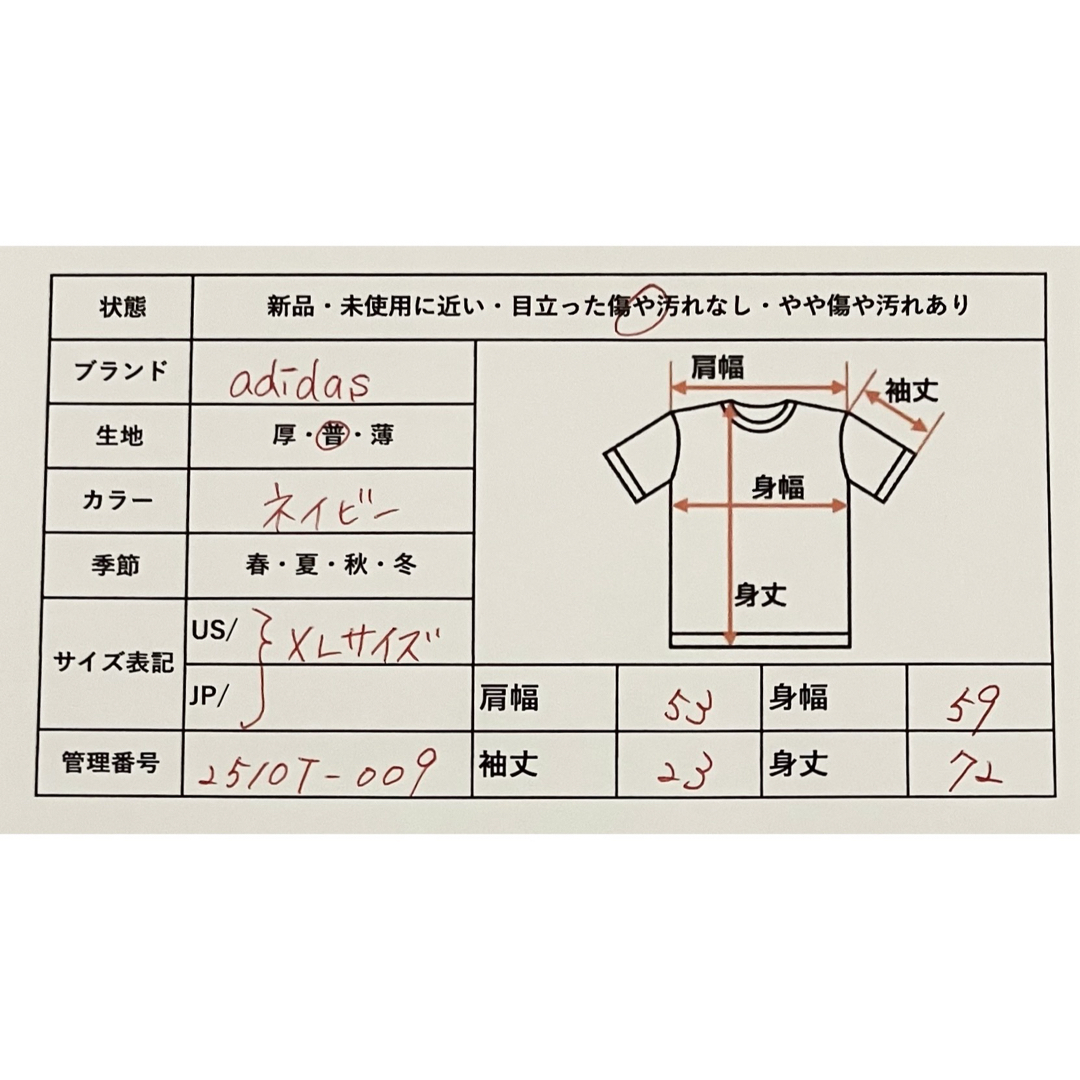 状態 新品・未使用に近い・目立った傷や汚れなし・やや傷や汚れあり
ブランド adidas
生地 厚・普・薄
カラー ネイビー
季節 春・夏・秋・冬
サイズ表記 US/ JP/ XLサイズ
管理番号 2510T-009
肩幅
袖丈
身幅
身丈
肩幅 53 身幅 59
袖丈 23 身丈 72